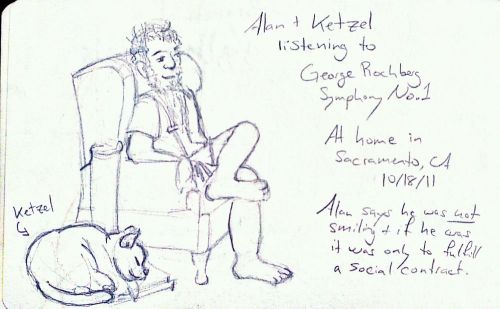 Alan + Ketzel
listening to
George Rochberg
Symphony No. 1
At home in
Sacramento, CA
10/18/11
Alan says he was not
smiling + if he was
it was only to fulfill
a social contract.
Ketzel